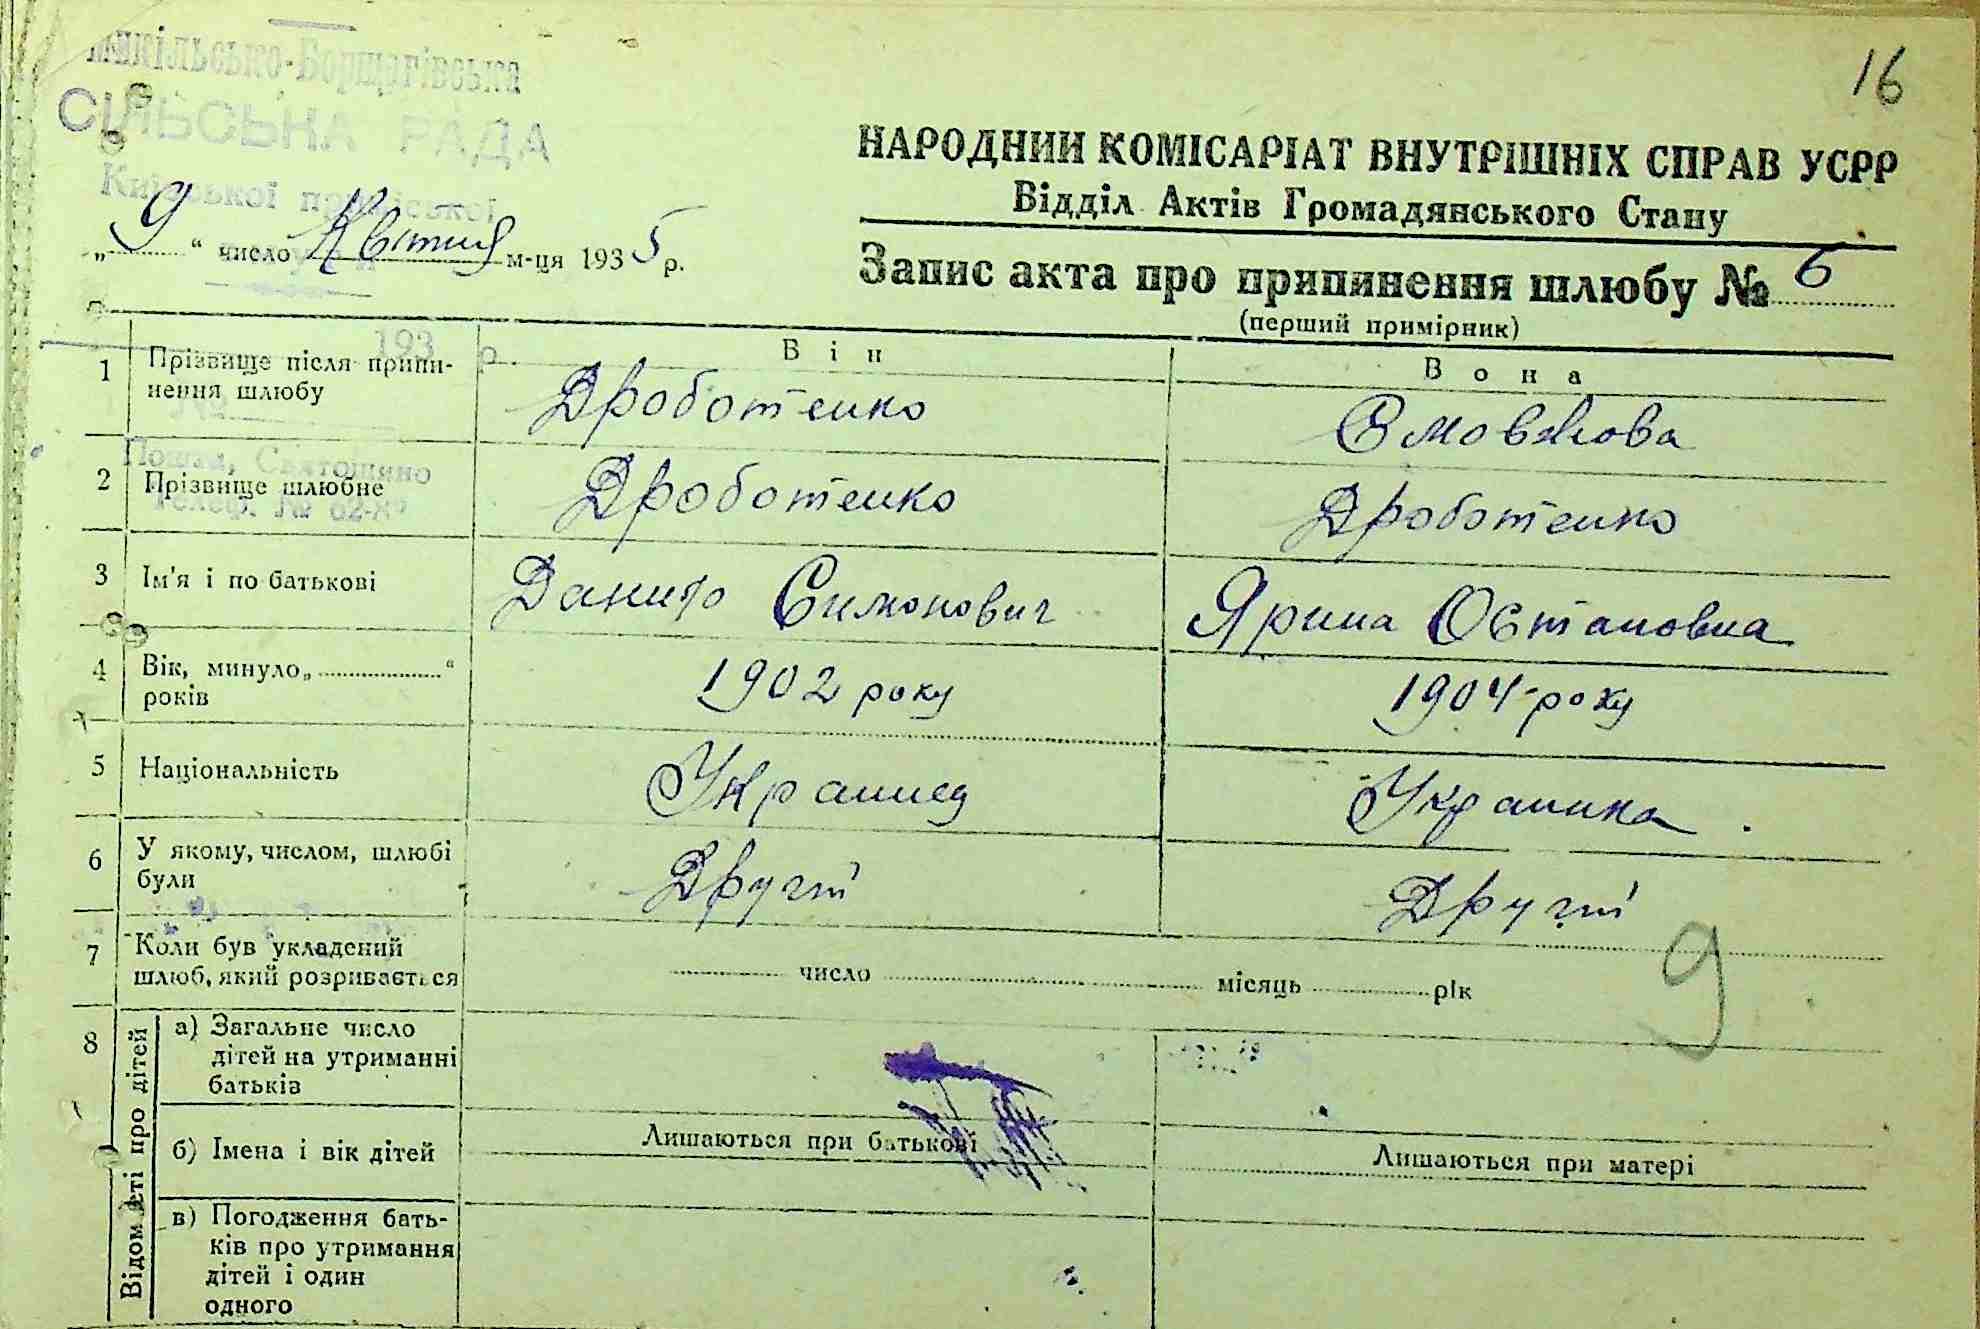 16
Микільсько-Борщагівська
СІЛЬСЬКА РАДА
Київської приміської
„ 9 “ число Квітня м-ця 1935 р.
НАРОДНИЙ КОМІСАРІАТ ВНУТРІШНІХ СПРАВ УСРР
Відділ Актів Громадянського Стану
Запис акта про припинення шлюбу № 6
(перший примірник)
193 р.
Він
Вона
1 Прізвище після припи-
нення шлюбу
Дроботенко
№
Пошта, Святошино
Телеф. № 62-
2 Прізвище шлюбне
Дроботенко
Дроботенко
3 Ім'я і по батькові
Данило Симонович
Ярина Остаповна
4 Вік, минуло „ “
років
1902 року
1904 року
5 Національність
Украинец
Украинка
6 У якому, числом, шлюбі
були
Другий
Другий
7 Коли був укладений
шлюб, який розривається
число місяць рік
9
8 Відомості про дітей
а) Загальне число
дітей на утриманні
батьків
б) Імена і вік дітей
Лишаються при батькові
Лишаються при матері
в) Погодження бать-
ків про утримання
дітей і один
одного